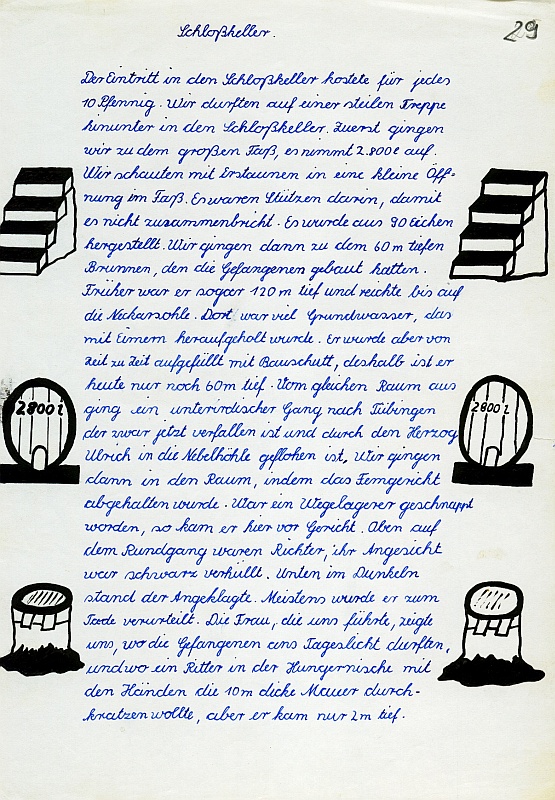 29
Schloßkeller.
Der Eintritt in den Schloßkeller kostete für jedes
10 Pfennig. Wir durften auf einer steilen Treppe
hinunter in den Schloßkeller. Zuerst gingen
wir zu dem großen Faß, es nimmt 2.800l auf.
Wir schauten mit Erstaunen in eine kleine Öff-
nung im Faß. Es waren Stützen darin, damit
es nicht zusammenbricht. Es wurde aus 90 Eichen
hergestellt. Wir gingen dann zu dem 60 m tiefen
Brunnen, den die Gefangenen gebaut hatten.
Früher war er sogar 120 m tief und reichte bis auf
die Neckarsohle. Dort war viel Grundwasser, das
mit Eimern heraufgeholt wurde. Er wurde aber von
Zeit zu Zeit aufgefüllt mit Bauschutt, deshalb ist er
heute nur noch 60m tief. Vom gleichen Raum aus
2800 l
ging ein unterirdischer Gang nach Tübingen
2800 l
der zwar jetzt verfallen ist und durch den Herzog
Ulrich in die Nebelhöhle geflohen ist. Wir gingen
dann in den Raum, indem das Femgericht
abgehalten wurde. War ein Wegelagerer geschnappt
worden, so kam er hier vor Gericht. Oben auf
dem Rundgang waren Richter, ihr Angesicht
war schwarz verhüllt. Unten im Dunkeln
stand der Angeklagte. Meistens wurde er zum
Tode verurteilt. Die Frau, die uns führte, zeigte
uns, wo die Gefangenen ans Tageslicht durften,
und wo ein Ritter in der Hungernische mit
den Händen die 10m dicke Mauer durch-
kratzen wollte, aber er kam nur 2m tief.